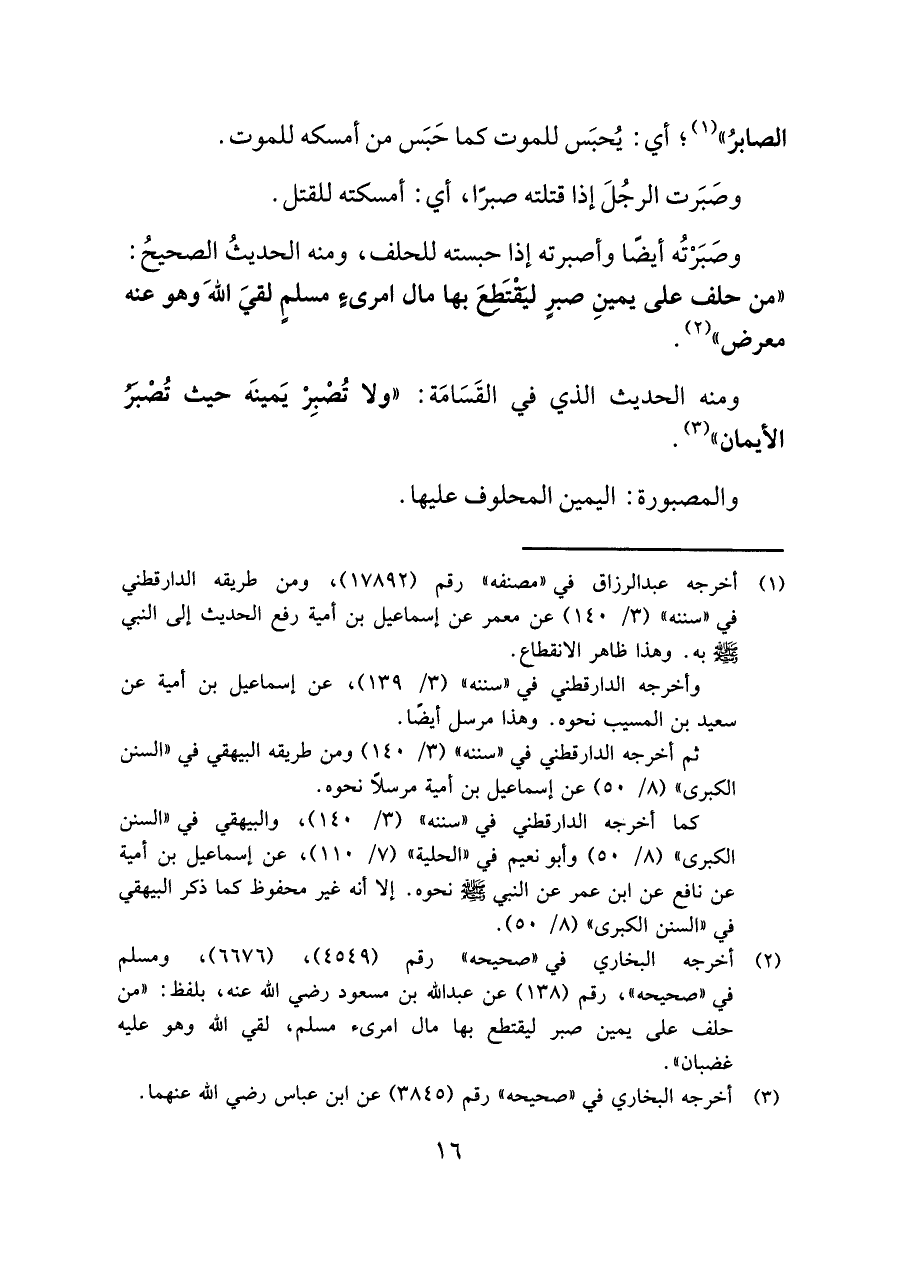 الصابرُ»(١)؛ أي: يُحبَس للموت كما حَبَس من أمسكه للموت.
وصَبَرت الرجُلَ إذا قتلته صبرًا، أي: أمسكته للقتل.
وصَبَرْتُه أيضًا وأصبرته إذا حبسته للحلف، ومنه الحديثُ الصحيحُ:
«من حلف على يمينِ صبرٍ ليَقْتَطِعَ بها مال امرىءٍ مسلمٍ لقيَ اللهَ وهو عنه
معرض»(٢).
ومنه الحديث الذي في القَسَامَة: «ولا تُصْبِرْ يَمينَه حيث تُصْبَرُ
الأيمان»(٣).
والمصبورة: اليمين المحلوف عليها.
(١) أخرجه عبدالرزاق في «مصنفه» رقم (١٧٨٩٢)، ومن طريقه الدارقطني
في «سننه» (٣/ ١٤٠) عن معمر عن إسماعيل بن أمية رفع الحديث إلى النبي
ﷺ به. وهذا ظاهر الانقطاع.
وأخرجه الدارقطني في «سننه» (٣/ ١٣٩)، عن إسماعيل بن أمية عن
سعيد بن المسيب نحوه. وهذا مرسل أيضًا.
ثم أخرجه الدارقطني في «سننه» (٣/ ١٤٠) ومن طريقه البيهقي في «السنن
الكبرى» (٨/ ٥٠) عن إسماعيل بن أمية مرسلاً نحوه.
كما أخرجه الدارقطني في «سننه» (٣/ ١٤٠)، والبيهقي في «السنن
الكبرى» (٨/ ٥٠) وأبو نعيم في «الحلية» (٧/ ١١٠)، عن إسماعيل بن أمية
عن نافع عن ابن عمر عن النبي ﷺ نحوه. إلا أنه غير محفوظ كما ذكر البيهقي
في «السنن الكبرى» (٨/ ٥٠).
(٢) أخرجه البخاري في «صحيحه» رقم (٤٥٤٩)، (٦٦٧٦)، ومسلم
في «صحيحه»، رقم (١٣٨) عن عبدالله بن مسعود رضي الله عنه، بلفظ: «من
حلف على يمين صبر ليقتطع بها مال امرىء مسلم، لقي الله وهو عليه
غضبان».
(٣) أخرجه البخاري في «صحيحه» رقم (٣٨٤٥) عن ابن عباس رضي الله عنهما.
١٦